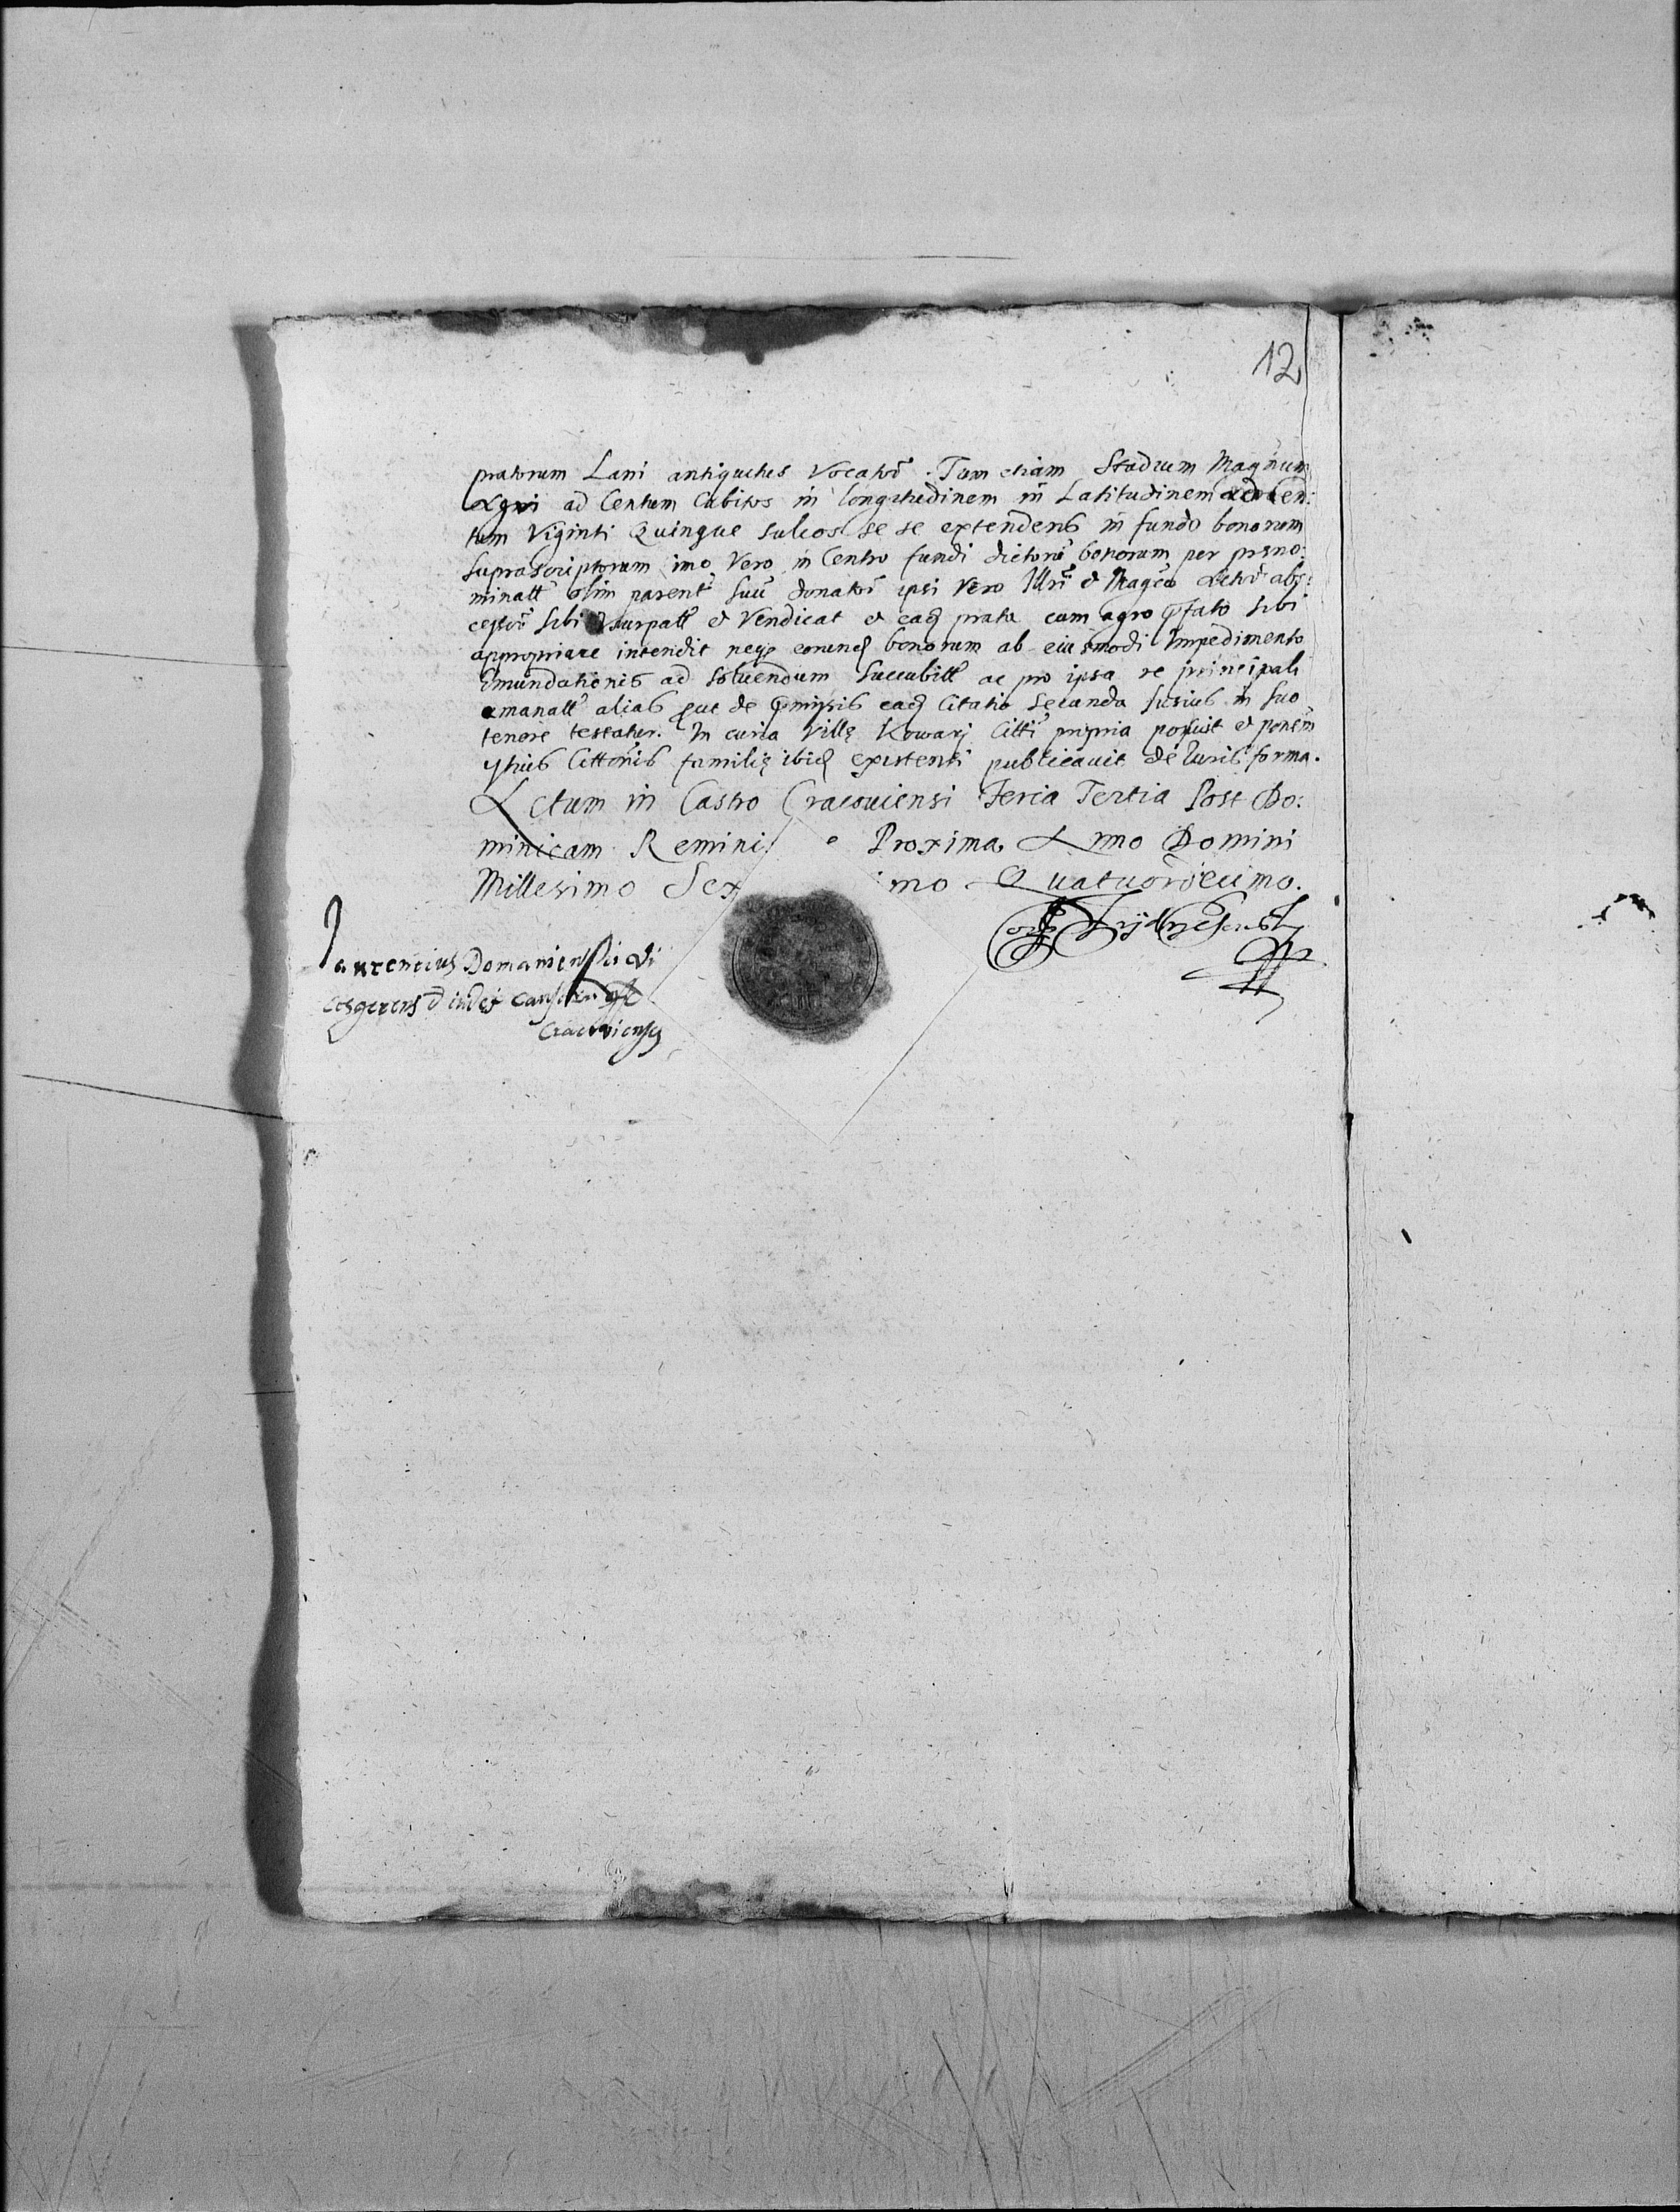 12
pratorum Lani antiquitus Vocatoř. Tum etiam Stadium Magnum
Agri ad Centum Cubitos in longitudinem in Latitudinem ad Cen:
tum Viginti Quinque sulcos se se extendens in fundo bonorum
suprascriptorum imo Vero in Centro fundi dictorū bonorum per præno:
minatt olim parent suū donatoř ipsi Vero Illri et Magco Actori
sibi Vsurpatt et Vendicat et eaq prata cum agro pfato sibi
appropriare intendit neq eorundq bonorum ab eiusmodi Impedimento
Emundationis ad soluendum Succubitt ac pro ipsa re principali
emanatt alias put de pmissis eaq Citatio secunda fusius in suo
tenore testatur. In curia Villę Kowary Citti propria posuit et
Cittōnis familię ibiq existenti publicauit de Iuris forma.
Actum in Castro Cracouiensi Feria Tertia Post Do:
minicam Remini e Proxima Anno Domini
Millesimo Sex mo Quatuordecimo.
Laurencius Domaniewski Vi
cesgerens et iudex
Cracouiensis